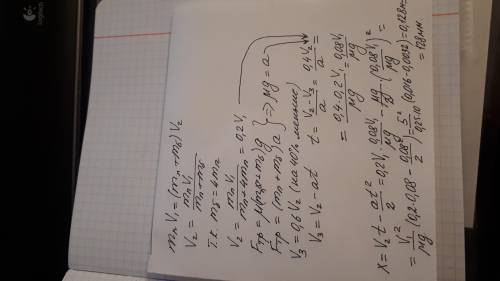 mпV₁ = (mп + mб)V₂
V₂ = mпV₁ / (mп + mб)
Т.к. mб = 4mп
V₂ = mпV₁ / (mп + 4mп) = 0,2V₁
Fтр = μ(mп + mб)g
Fтр = (mп + mб)a } => μg = a
V₃ = 0,6V₂ (на 40% меньше)
V₃ = V₂ - at    t = (V₂ - V₃) / a = 0,4V₂ / a =
= 0,4·0,2V₁ / μg = 0,08V₁ / μg
X = V₂t - at²/2 = 0,2V₁ · 0,08V₁/μg - μg/2 · (0,08V₁/μg)² =
= V₁²/μg (0,2·0,08 - 0,08²/2) = 5²/(0,25·10) (0,016 - 0,0032) = 0,128м =
= 128мм.
Logitech